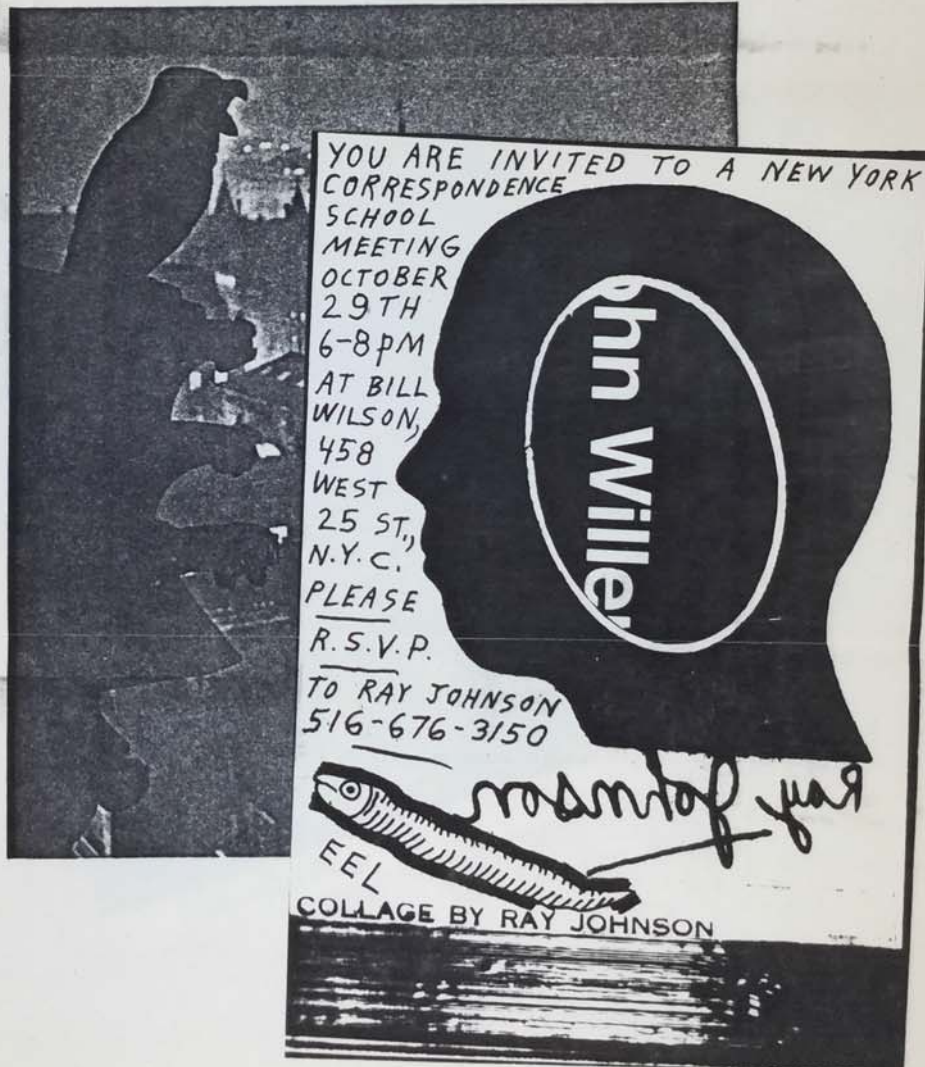 YOU ARE INVITED TO A NEW YORK
CORRESPONDENCE
SCHOOL
MEETING
OCTOBER
29TH
6-8PM
AT BILL
WILSON,
458
WEST
25 ST.,
N.Y.C.
PLEASE
R.S.V.P.
TO RAY JOHNSON
516-676-3150
ohn Wille
Ray Johnson
EEL
COLLAGE BY RAY JOHNSON